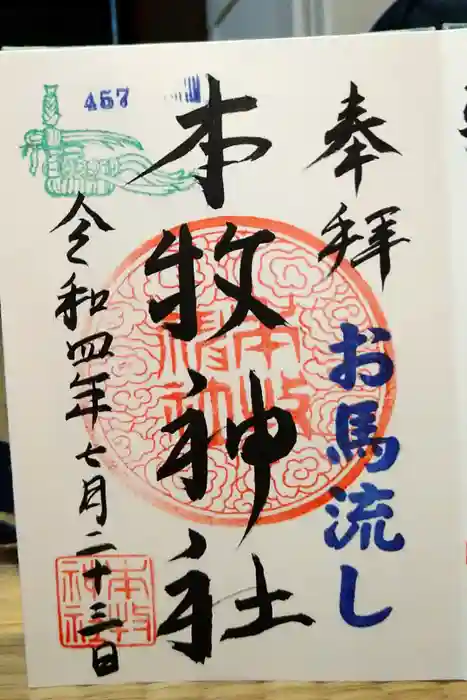 奉拝
お馬流し
本牧神社
本牧
神社
令和四年七月二十三日
457